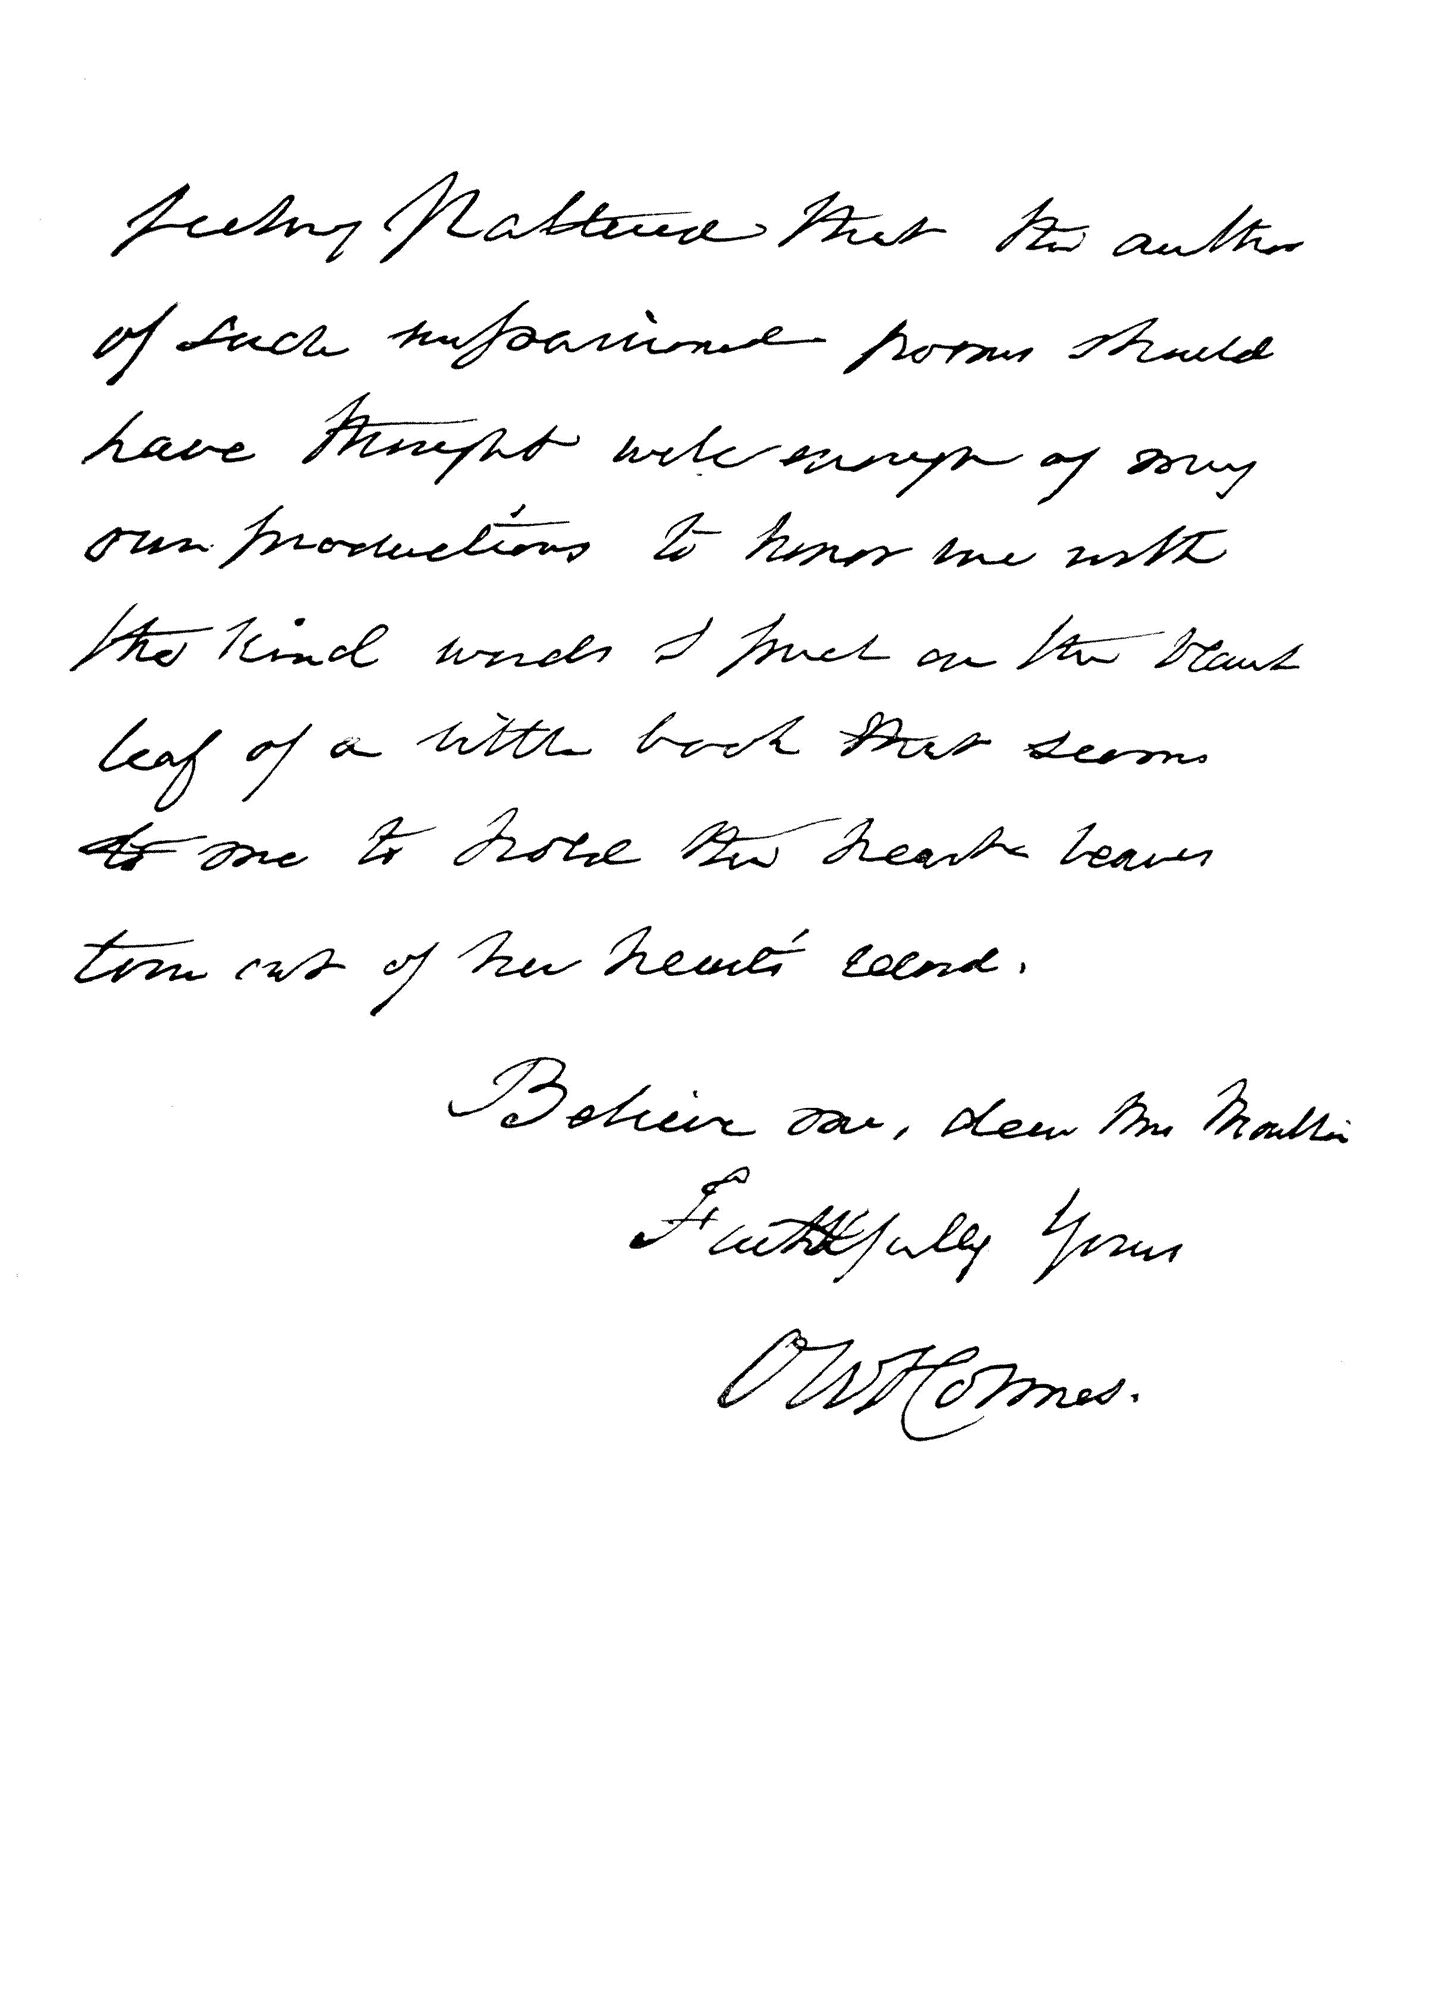 feeling flattered that the author
of such impassioned poems should
have thought well enough of my
own productions to honor me with
the kind words I find on the blank
leaf of a little book that seems
to me to hold the heart leaves
torn out of her heart's record.
Believe me, dear Mrs Moulton
Faithfully yours
O W Holmes.